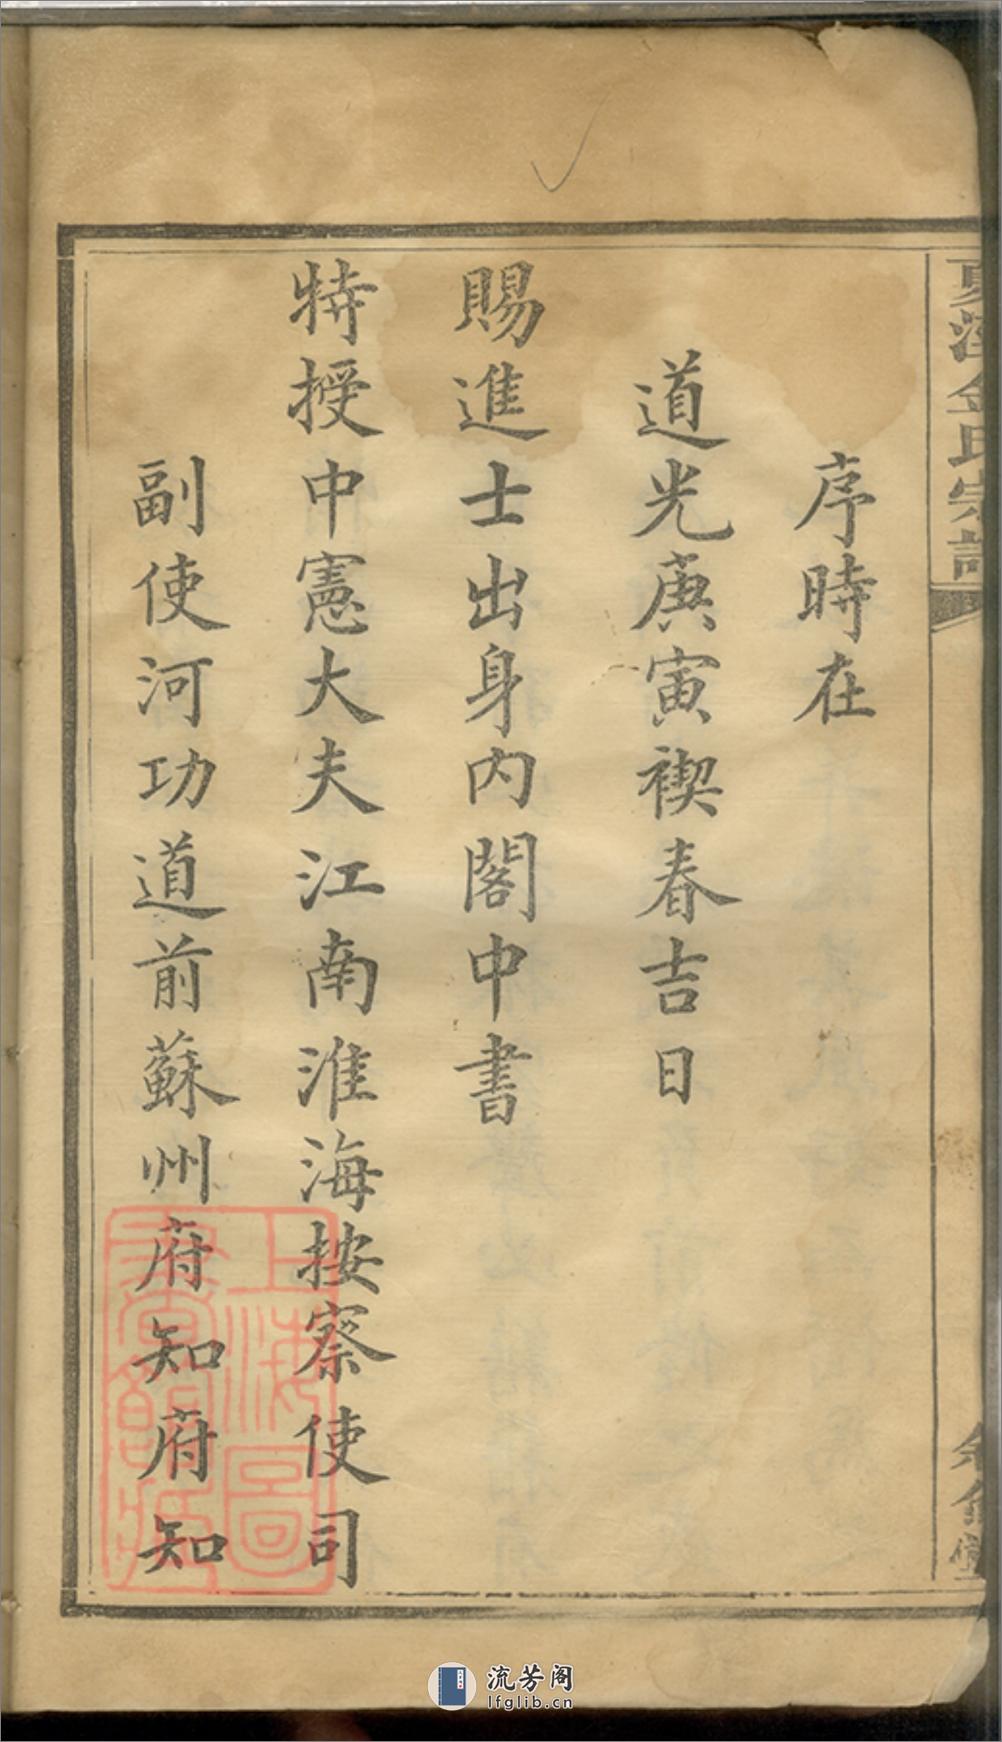 序時在
道光庚寅禊春吉日
賜進士出身內閣中書
特授中憲大夫江南淮海按察使司
副使河功道前蘇州府知府知
金氏宗譜
上海圖書館藏
流芳阁
lfglib.cn